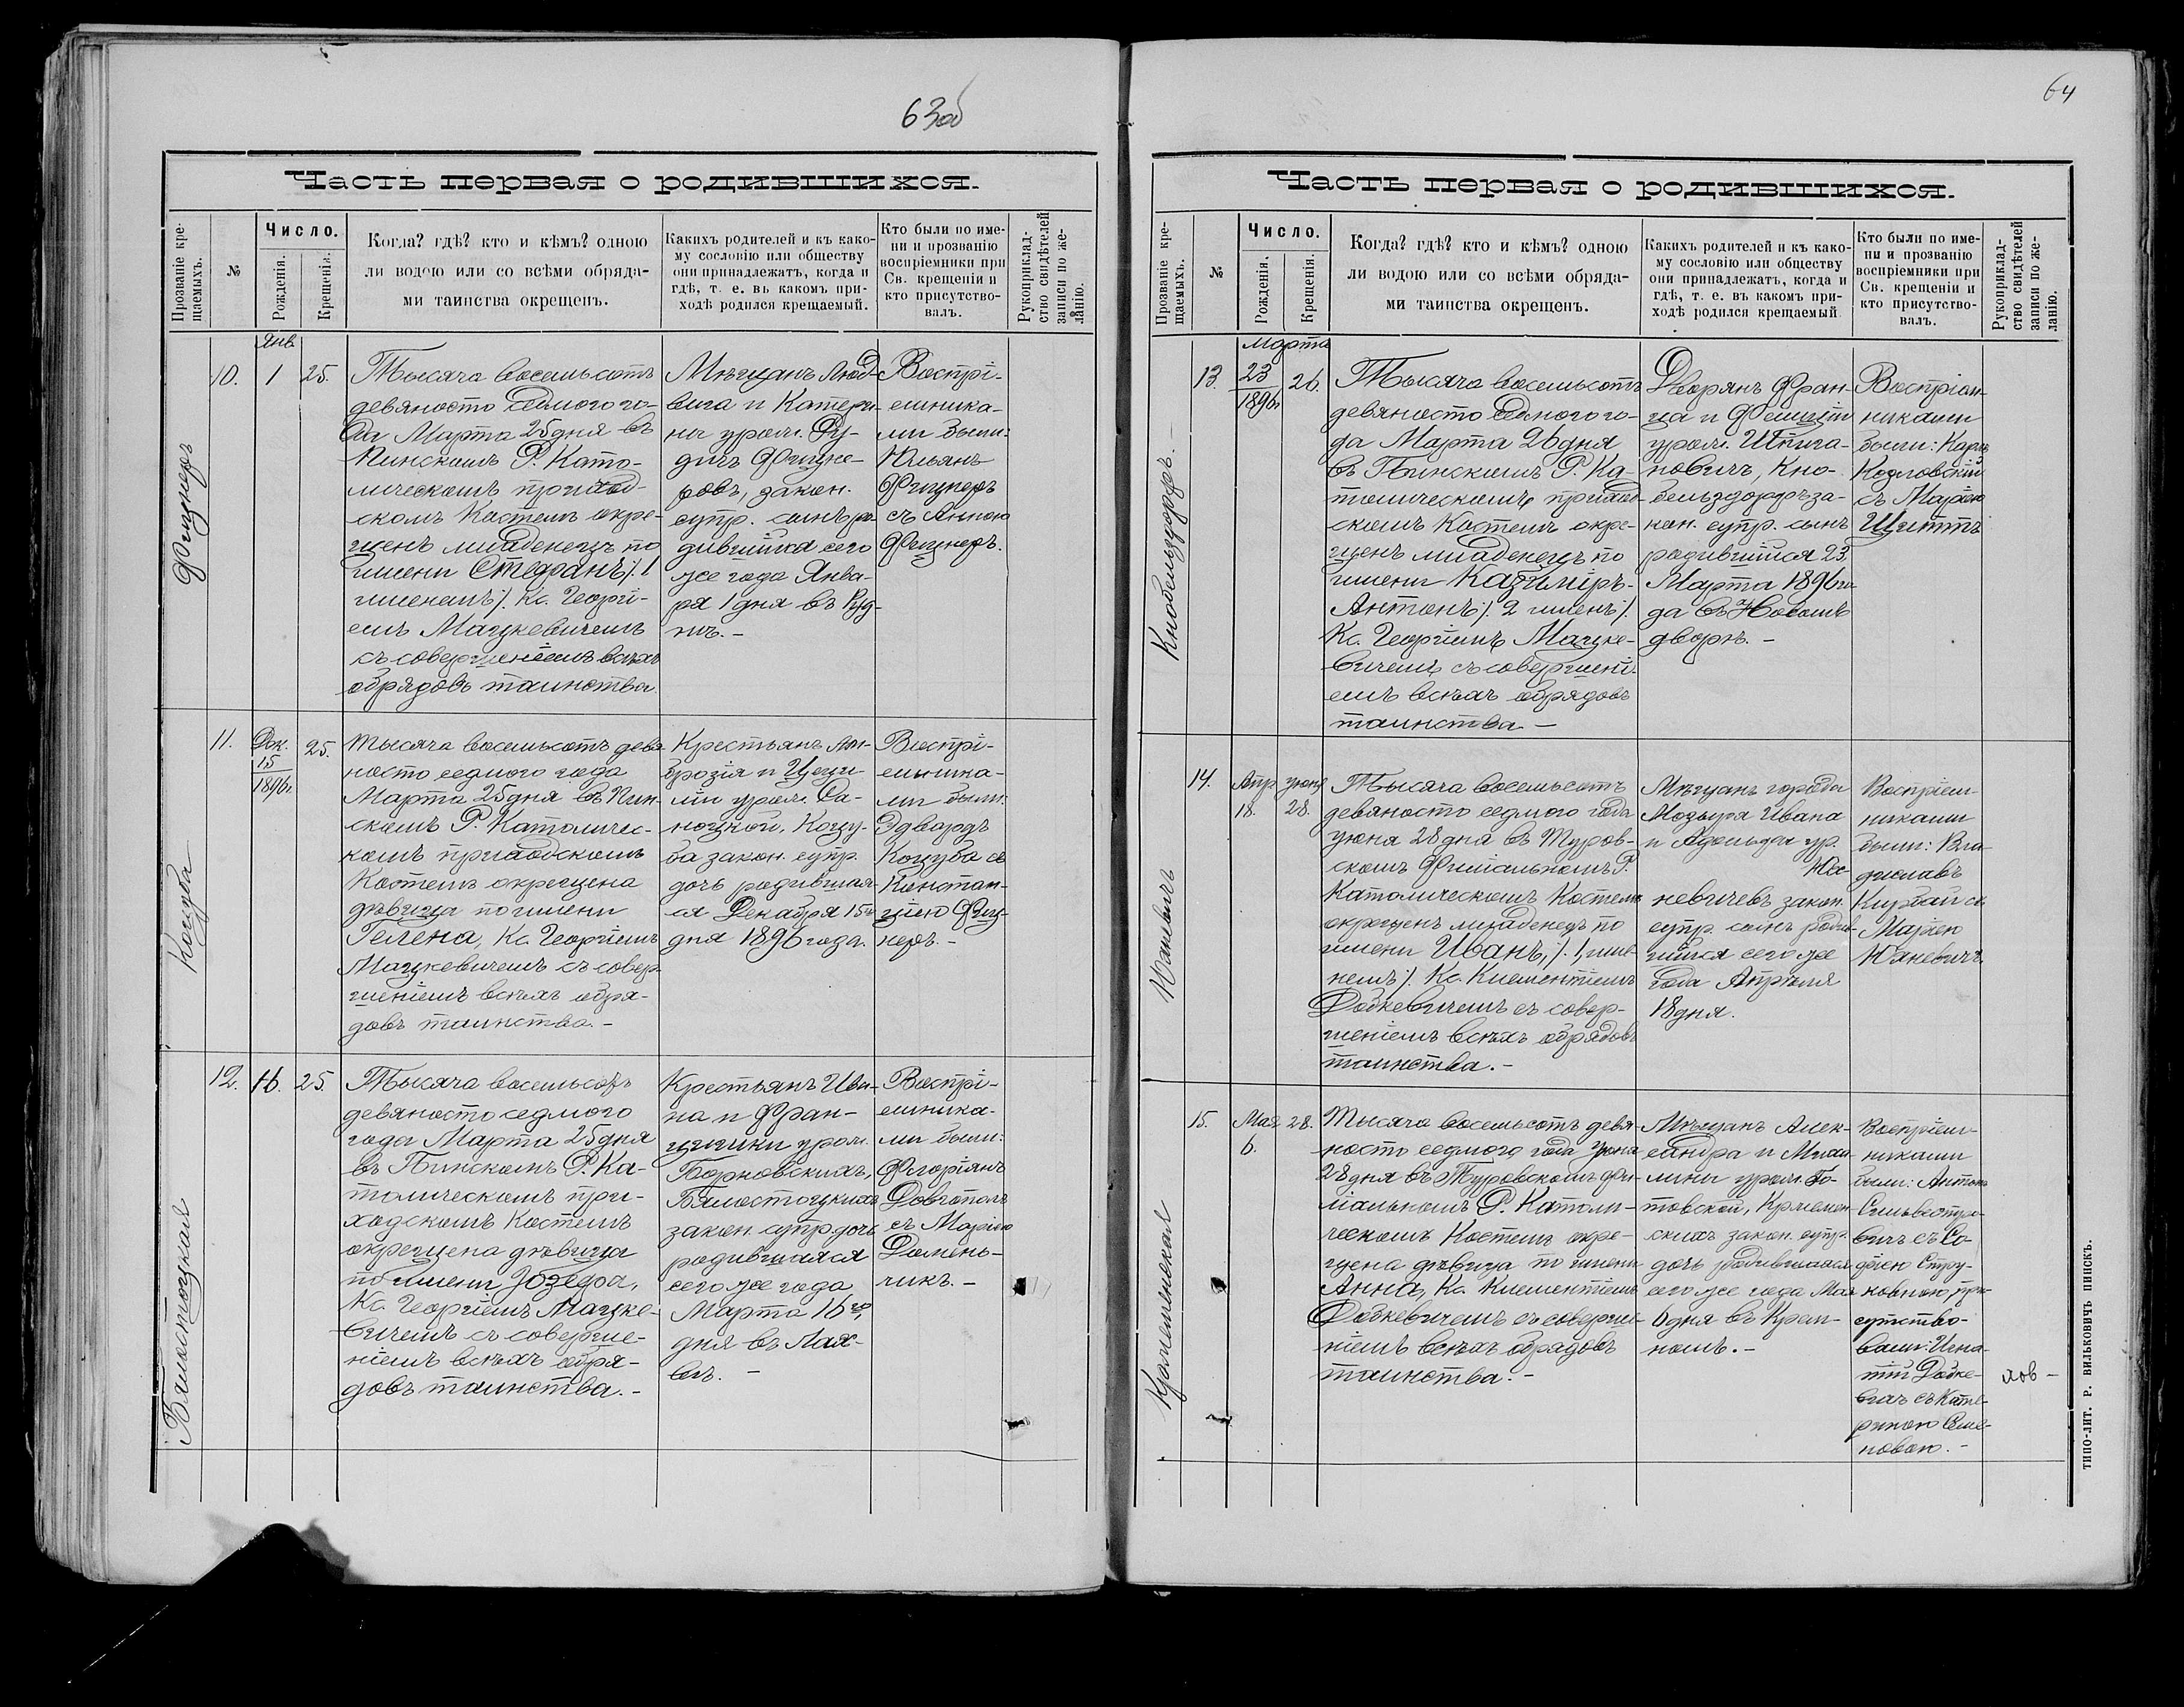 63об
Часть первая о родившихся.
Прозваніе кре-
щаемыхъ.
№
Число.
Рожденія.
Крещенія.
Когда? гдѣ? кто и кѣмъ? одною
ли водою или со всѣми обряда-
ми таинства окрещенъ.
Какихъ родителей и къ како-
му сословію или обществу
они принадлежатъ, когда и
гдѣ, т. е. въ какомъ при-
ходѣ родился крещаемый.
Кто были по име-
ни и прозванію
воспріемники при
Св. крещеніи и
кто присутство-
валъ.
Рукоприклад-
ство свидѣтелей
записи по же-
ланію.
Фицнеръ
10.
Янв
1
25.
Тысяча восемьсотъ
девяносто седмого го-
да Марта 25 дня въ
Пинскомъ Р. Като-
лическомъ приход-
скомъ Костелѣ окре-
щенъ младенецъ по
имени Стефанъ /. 1
именемъ /. Кс. Георгі-
емъ Мацкевичемъ
съ совершеніемъ всѣхъ
обрядовъ таинства.
Мѣщанъ Люд-
вига и Катери-
ны урож. Ру-
дичъ Фицне-
ровъ, закон.
супр. сынъ ро-
дившійся сего
же года Янва-
ря 1 дня въ Руд-
нѣ. -
Воспрі-
емника-
ми были:
Юльянъ
Фицнеръ
съ Анною
Фицнеръ.
Коцуба
11.
Дек.
15
1896г.
25.
Тысяча восемьсотъ девя
носто седмого года
Марта 25 дня въ Пин-
скомъ Р. Католичес-
комъ приходскомъ
Костелѣ окрещена
дѣвица по имени
Гелена, Кс. Георгіемъ
Мацкевичемъ съ совер-
шеніемъ всѣхъ обря-
довъ таинства. -
Крестьянъ Ам-
брозія и Цеци-
ліи урож. Са-
ноцкой, Коцу-
ба закон. супр.
дочь родившая-
ся Декабря 15го
дня 1896 года.
Воспрі-
емника-
ми были:
Эдвардъ
Коцуба съ
Констан-
ціею Фиц-
неръ. -
Бялостоцкая
12.
16.
25
Тысяча восемьсотъ
девяносто седмого
года Марта 25 дня
въ Пинскомъ Р. Ка-
толическомъ при-
ходскомъ Костелѣ
окрещена дѣвица
по имени Юзефа,
Кс. Георгіемъ Мацке-
вичемъ съ соверше-
ніемъ всѣхъ обря-
довъ таинства. -
Крестьянъ Ива-
на и Фран-
цишки урож.
Борновскихъ,
Бялостоцкихъ
закон. супр. дочь
родившаяся
сего же года
Марта 16го
дня въ Лах-
вѣ. -
Воспрі-
емника-
ми были:
Флоріянъ
Довгополъ
съ Маріею
Домень-
чикъ. -
64
Часть первая о родившихся.
Прозваніе кре-
щаемыхъ.
№
Число.
Рожденія.
Крещенія.
Когда? гдѣ? кто и кѣмъ? одною
ли водою или со всѣми обряда-
ми таинства окрещенъ.
Какихъ родителей и къ како-
му сословію или обществу
они принадлежатъ, когда и
гдѣ, т. е. въ какомъ при-
ходѣ родился крещаемый
Кто были по име-
ни и прозванію
воспріемники при
Св. крещеніи и
кто присутство-
валъ.
Рукоприклад-
ство свидѣтелей
записи по же-
ланію.
Кнобельздорфъ. -
13.
Марта
23
1896г
26.
Тысяча восемьсотъ
девяносто седмого го-
да Марта 26 дня
въ Пинскомъ Р. Ка-
толическомъ приход-
скомъ Костелѣ окре-
щенъ младенецъ по
имени Казиміръ-
Антонъ /. 2 именъ /.
Кс. Георгіемъ Мацке-
вичемъ съ совершені-
емъ всѣхъ обрядовъ
таинства. -
Дворянъ Фран-
ца и Фелиціи
урож. Шпига-
новичъ, Кно-
бельздорфъ за-
кон. супр. сынъ
родившійся 23
Марта 1896 го-
да въ Новомъ
дворѣ. -
Воспріем-
никами
были: Карлъ
Козловскій
съ Маріею
Циттъ
14.
Апр.
18.
Іюня
28.
Тысяча восемьсотъ
девяносто седмого года
Іюня 28 дня въ Туров-
скомъ Филіальномъ Р.
Католическомъ Костелѣ
окрещенъ младенецъ по
имени Иванъ, /. 1, име-
немъ /. Кс. Клементіемъ
Додкевичемъ съ совер-
шеніемъ всѣхъ обрядовъ
таинства. -
Мѣщанъ города
Мозыря Ивана
и Адольфы ур.
невичевъ закон.
супр. сынъ родив-
шійся сего же
года Апрѣля
18 дня.
Воспріем-
никами
были: Вла-
диславъ
съ
Маріею
Юхневичъ.
Кременевская
15.
Мая
6.
28.
Тысяча восемьсотъ девя-
носто седмого года Іюня
28 дня въ Туровскомъ фи-
ліальномъ Р. Католи-
ческомъ Костелѣ окре-
щена дѣвица по имени
Анна, Кс. Клементіемъ
Додкевичемъ съ соверше-
ніемъ всѣхъ обрядовъ
таинства. -
Мѣщанъ Алек-
сандра и Миха-
лины урож.
скихъ закон. супр.
дочь родившаяся
сего же года Мая
6 дня въ Крем-
номъ. -
Воспріем-
никами
были: Антонъ
Сильвестро-
вичъ съ Со-
фіею Стру-
ковною, при-
сутство-
вали: Игна-
тій Додке-
вичъ съ Кате-
риною Семе-
новою. -
ТИПО-ЛИТ. Р. ВИЛЬКОВИЧЪ ПИНСКЪ.